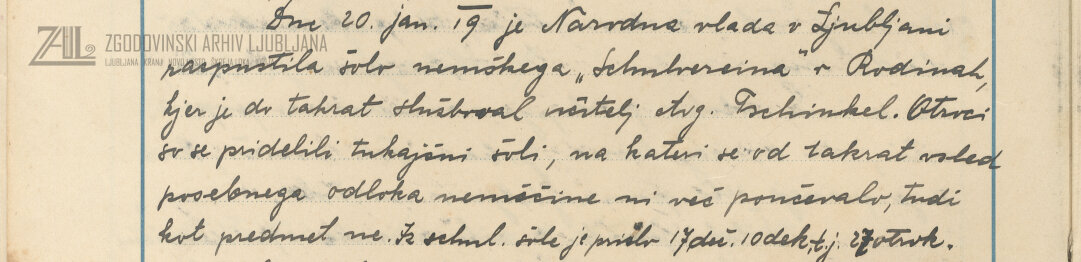 Dne 20. jan. 19 je Narodna vlada v Ljubljani
ZAL ZGODOVINSKI ARHIV LJUBLJANA
razpustila šolo nemškega „Schulvereina" v Rodinah,
kjer je do takrat služboval učitelj Avg. Tschinkel. Otroci
so se pridelili tukajšni šoli, na kateri se od takrat vsled
posebnega odloka nemščine ni več poučevalo, tudi
kot predmet ne. Iz schul. šole je prišlo 17 deč. 10 dek. t. j. 27 otrok.